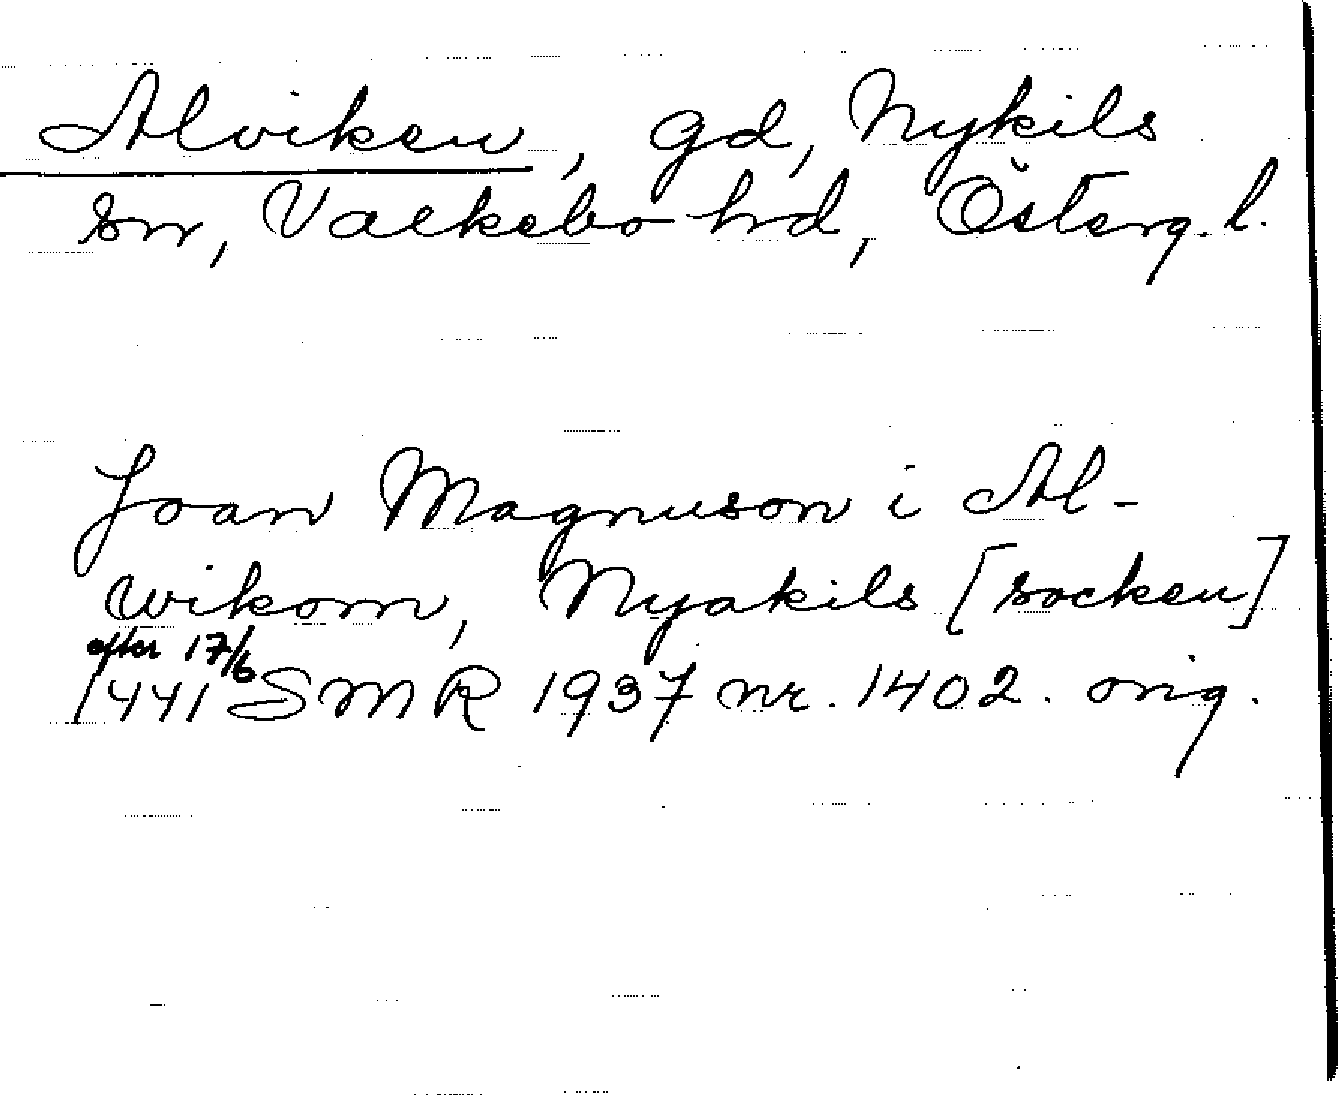 Alviken, gd, Nykils
sn, Valkebo hrd, Österg. l.
Joan Magnuson i Al-
wikom, Nyakils [socken]
efter 17/6
1441 SMR 1937 nr. 1402. orig.